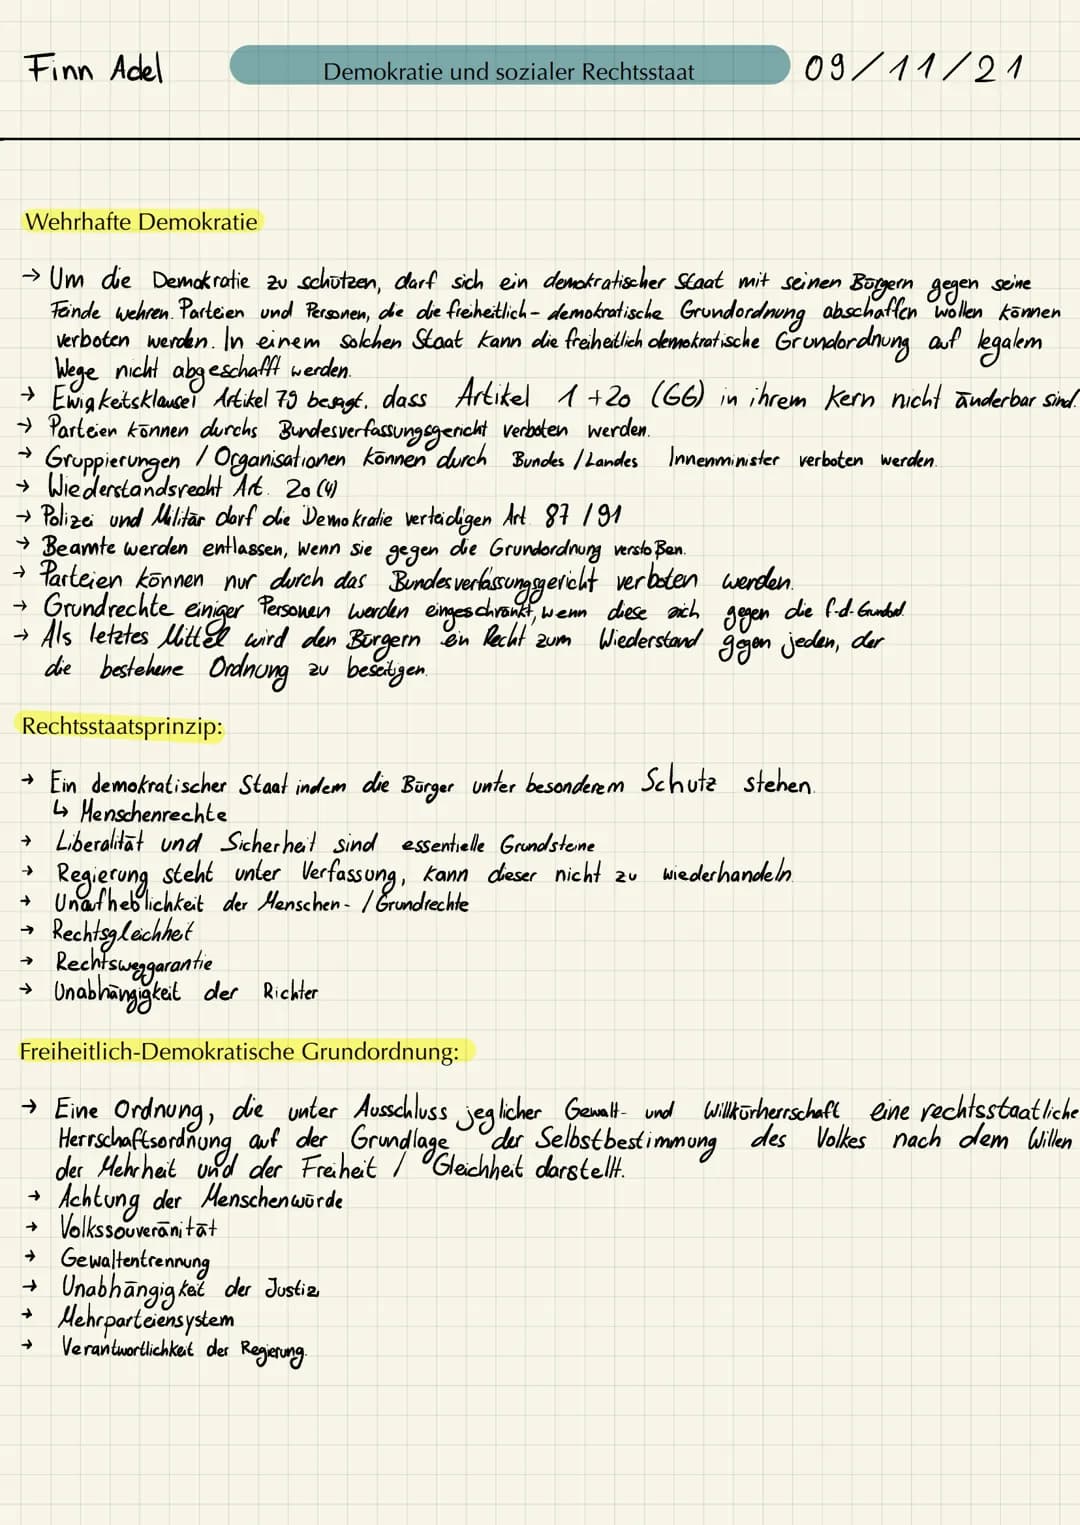 Finn Adel
Demokratie und sozialer Rechtsstaat
09/11/21
Wehrhafte Demokratie
→ Um die Demokratie zu schützen, darf sich ein demokratischer Staat mit seinen Bürgern gegen seine
Feinde wehren. Parteien und Personen, die die freiheitlich-demokratische Grundordnung abschaffen wollen können
verboten werden. In einem solchen Staat kann die freiheitlich demokratische Grundordnung auf legalem
Wege nicht abgeschafft werden.
→ Ewigkeitsklausel Artikel 79 besagt, dass Artikel 1+20 (GG) in ihrem Kern nicht änderbar sind.
→ Parteien können durchs Bundesverfassungsgericht verboten werden.
→ Gruppierungen / Organisationen können durch Bundes/Landes Innenminister verboten werden.
→ Wiederstandsrecht Art. 20 (4)
→ Polizei und Militär darf die Demokratie verteidigen Art 87 / 91
→ Beamte werden entlassen, wenn sie gegen die Grundordnung verstoßen.
→ Parteien können nur durch das Bundesverfassungsgericht verboten werden.
→ Grundrechte einiger Personen werden eingeschränkt, wenn diese sich gegen die f.-d. Grundord.
→ Als letztes Mittel wird den Bürgern ein Recht zum Wiederstand gegen jeden, der
die bestehene Ordnung zu beseitigen.
Rechtsstaatsprinzip:
→ Ein demokratischer Staat indem die Bürger unter besonderem Schutz stehen.
↳ Menschenrechte
→ Liberalität und Sicherheit sind essentielle Grundsteine
→ Regierung steht unter Verfassung, kann dieser nicht zu wiederhandeln.
→ Unafheblichkeit der Menschen- / Grundrechte
→ Rechtsgleichheit
→ Rechtsweggarantie
→ Unabhängigkeit der Richter
Freiheitlich-Demokratische Grundordnung:
→ Eine Ordnung, die unter Ausschluss jeglicher Gewalt- und Willkürherrschaft eine rechtsstaatliche
Herrschaftsordnung auf der Grundlage der Selbstbestimmung des Volkes nach dem Willen
der Mehrheit und der Freiheit / Gleichheit darstellt.
→ Achtung der Menschenwürde
→ Volkssouveränität
→ Gewaltentrennung
→ Unabhängigkeit der Justiz
→ Mehrparteiensystem
→ Verantwortlichkeit der Regierung.